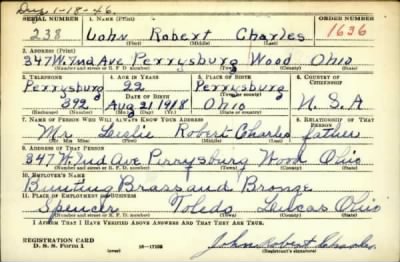 Dup 1-18-46.
SERIAL NUMBER 1. NAME (Print) ORDER NUMBER
238 John Robert Charles 1636
(First) (Middle) (Last)
2. ADDRESS (Print)
347 W. 2nd Ave Perrysburg Wood Ohio
(Number and street or R. F. D. number) (Town) (County) (State)
3. TELEPHONE 4. AGE IN YEARS 5. PLACE OF BIRTH 6. COUNTRY OF CITIZENSHIP
Perrysburg 22 Perrysburg
DATE OF BIRTH (Town or county)
392 Aug 21 1918 Ohio U. S. A
(Exchange) (Number) (Mo.) (Day) (Yr.) (State or country)
7. NAME OF PERSON WHO WILL ALWAYS KNOW YOUR ADDRESS 8. RELATIONSHIP OF THAT PERSON
Mr. Leslie Robert Charles father
(Mr., Mrs., Miss) (First) (Middle) (Last)
9. ADDRESS OF THAT PERSON
347 W. 2nd Ave Perrysburg Wood Ohio
(Number and street or R. F. D. number) (Town) (County) (State)
10. EMPLOYER'S NAME
Bunting Brass and Bronze
11. PLACE OF EMPLOYMENT OR BUSINESS
Spencer Toledo Lucas Ohio
(Number and street or R. F. D. number) (Town) (County) (State)
I AFFIRM THAT I HAVE VERIFIED ABOVE ANSWERS AND THAT THEY ARE TRUE.
REGISTRATION CARD
D. S. S. Form 1 (over) 16-17105 John Robert Charles
(Registrant's signature)